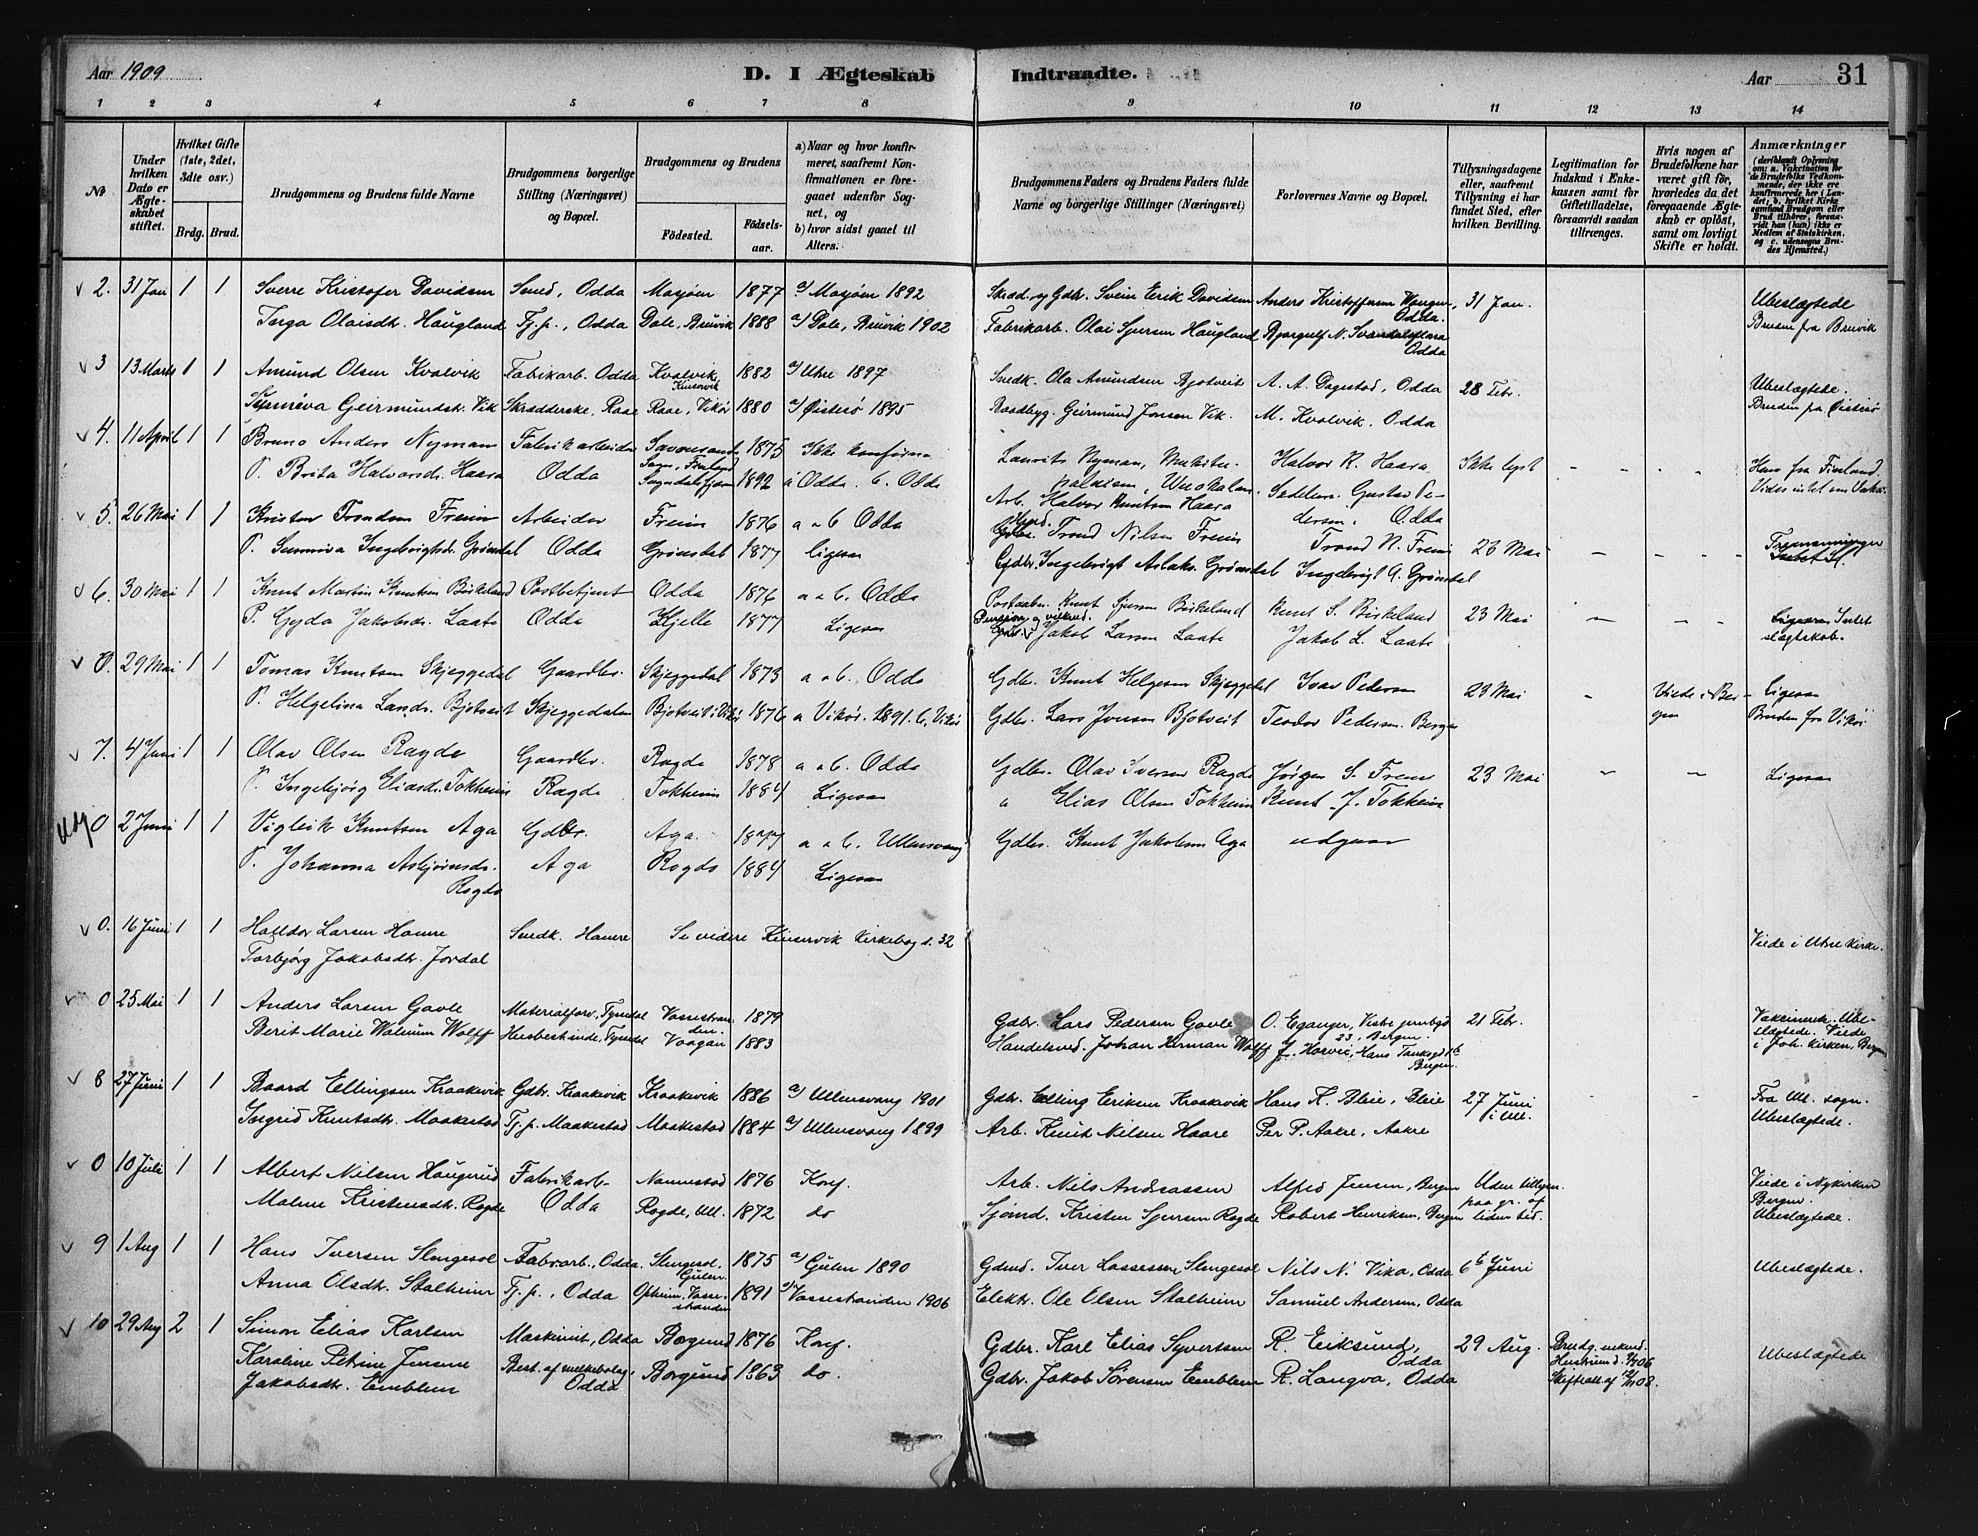 Aar 1909
D. I Ægteskab Indtraadte.
Aar 31
1 2 3 4 5 6 7 8 9 10 11 12 13 14
No
Under hvilken Dato er Ægteskabet stiftet.
Hvilket Gifte (1ste, 2det, 3die osv.)
Brdg. Brud.
Brudgommens og Brudens fulde Navne
Brudgommens borgerlige Stilling (Næringsvei) og Bopæl.
Brudgommens og Brudens
Fødested. Fødselsaar.
a) Naar og hvor konfirmeret, saafremt Konfirmationen er foregaaet udenfor Sognet, og
b) hvor sidst gaaet til Alters.
Brudgommens Faders og Brudens Faders fulde Navne og borgerlige Stillinger (Næringsvei)
Forlovernes Navne og Bopæl.
Tillysningsdagene eller, saafremt Tillysning ei har fundet Sted, efter hvilken Bevilling.
Legitimation for Indskud i Enkekassen samt for Giftetilladelse, forsaavidt saadan tiltrænges.
Hvis nogen af Brudefolkene har været gift før, hvorledes da det foregaaende Ægteskab er opløst, samt om lovligt Skifte er holdt.
Anmærkninger
(deriblandt Oplysning om: a. Vakcination for de Brudefolks Vedkommende, der ikke ere konfirmerede her i Landet; b. hvilket Kirkesamfund Brudgom eller Brud tilhører, forsaavidt han (hun) ikke er Medlem af Statskirken, og c. udensogns Brudes Hjemsted.)
2. 31 Jan 1 1 Sverre Kristofer Davidsen Smed, Odda Mosjøen 1877 a) Mosjøen 1892 Skræd. og Gdbr. Svein Erik Davidsen Anders Kristoffersen Wangen, Odda. 31 Jan. Ubeslægtede
Inga Olaisdt. Haugland Tj.p., Odda Dale, Bruvik 1888 a) Dale, Bruvik 1902 Fabrikarb. Olai Sjursen Haugland Bjorgulf N. Svandalsflaa Odda Bruden fra Bruvik
3 13 Marts 1 1 Amund Olsen Kvalvik Fabrikarb. Odda Kvalvik, Kinservik 1882 a) Utne 1897 Snedk. Ola Amundsen Bjotveit A. A. Dagestad, Odda 28 Febr. Ubeslægtede.
Synneva Geirmundsdt. Vik Skrædderske, Raae Raae, Vikør 1880 a) Øistesø 1895 Baadbyg. Geirmund Jonsen Vik. M. Kvalvik, Odda Bruden fra Øistesø
4. 11 April 1 1 Bruno Anders Nyman Fabrikarbeider 1875 Ikke konfirm. Laurits Nyman, Halvor K. Haara Ikke lyst - - - Han fra Finland
P. Brita Halvorsd. Haara Odda 1892 a Odda. b. Odda Arb. Halvor Knutsen Haara Gustav Pedersen, Odda Vides intet om
5. 26 Mai 1 1 Kristen Trondsen Freim Arbeider Freim 1876 a & b Odda Gdbr. Trond Nilsen Freim Trond N. Freim 23 Mai - - -
P. Sunniva Ingebrigtsd. Grønsdal Odda Grønsdal 1877 Ligesaa Gdbr. Ingebrigt Aslaks. Grønsdal Ingebrigt A. Grønsdal
6. 30 Mai 1 1 Knut Martin Knutsen Birkeland Postbetjent Odda 1876 a & b. Odda Postaabn. Knut Sjursen Birkeland Knut S. Birkeland 23 Mai - - - Ligesaa. Intet slægtskab.
P. Gyda Jakobsd. Laate Odda Hjelle 1877 Ligesaa Jakob Larsen Laate Jakob L. Laate
0. 29 Mai 1 1 Tomas Knutsen Skjeggedal Gaardbr. Skjeggedal 1873 a & b. Odda Gdbr. Knut Helgesen Skjeggedal Ivar Pedersen 23 Mai - Viede i Bergen Ligesaa
P. Helgelina Larsd. Bjotveit Skjeggedalen Bjotveit i Vikør 1876 a Vikør. 1891. b, Vikør Gdbr. Lars Jonsen Bjotveit Teodor Pedersen. Bergen Bruden fra Vikør
7. 4 Juni 1 1 Olav Olsen Ragde Gaardbr. Ragde 1878 a & b. Odda Gdbr. Olav Iversen Ragde Jørgen S. Freim 23 Mai - - Ligesaa
P. Ingebjørg Eliasd. Tokheim Ragde Tokheim 1884 Ligesaa " Elias Olsen Tokheim Knut J. Tokheim
0 2 Juni 1 1 Vigleik Knutsen Aga Gdbr. Aga. 1877 a & b. Ullensvang Gdbr. Knut Jakobsen Aga udgaar
P. Johanna Asbjørnsd. Ragde Aga Ragde 1884 Ligesaa
0. 16 Juni 1 1 Halldor Larsen Hamre Snedk. Hamre Se videre Kinservik Kirkebog s. 32 Viede i Utne Kirke.
Torbjørg Jakobsdt. Jordal
0 25 Mai 1 1 Anders Larsen Gavle Materialforv., Tyssedal Vossestranden. 1879 Gdbr. Lars Pedersen Gavle O. Eganger, 23, Bergen. 21 Febr. Vakcinerk. Ubeslægtede. Viede i Joh. kirken, Bergen
Berit Marie Walnum Wolff Husbestinde, Tyssedal Vaagan 1883 Handelsred. Johan Herman Wolff J. Horvei, Hans Tanksgd 1b Bergen.
8 27 Juni 1 1 Baard Ellingsen Kraakevik Gdbr. Kraakevik Kraakevik 1886 a) Ullensvang 1901 Gdbr. Elling Eriksen Kraakevik Hans K. Bleie, Bleie 27 Juni i Ull. - - Fra Ull. sogn.
Ingrid Knutsdt. Maakestad Tj.p. Maakestad Maakestad 1884 a) Ullensvang 1899 Arb. Knut Nilsen Haare Per P. Aakre, Aakre Ubeslægtede.
0 10 Juli 1 1 Albert Nilsen Haugerud Fabrikarb. Nannestad 1876 Konf. Arb. Nils Andreassen Alfred Jensen, Bergen Uden tillysn. Viede i Nykirken Bergen.
Malene Kristensdt. Ragde Odda Ragde, Ull. 1872 do Sjømd. Kristen Sjursen Ragde Robert Henriksen, Bergen paa gr. af liden tid. Ubeslægtede.
9 1 Aug 1 1 Hans Iversen Slengesol Fabr.arb., Odda. Slengesol. Gulen. 1875 a) Gulen 1890 Gdmd. Iver Lassesen Slengesol Nils N. Vika, Odda 6t Juni Ubeslægtede.
Anna Olsdt. Stalheim Tj.p., Odda Opheim, Vossestranden 1891 a) Vossestranden 1906 Elektr. Ole Olsen Stalheim Samuel Andersen, Odda
10 29 Aug 2 1 Simon Elias Karlsen Maskinist, Odda Borgund 1876 Konf. Gdbr. Karl Elias Syvertsen R. Eiksund, Odda 29 Aug.
Karoline Petrine Jensine Jakobsdt. Emblem Best. af melkebolag, Odda Borgund 1863 do. Gdbr. Jakob Sørensen Emblem R. Langva, Odda Skifteatt. af Ubeslægtede